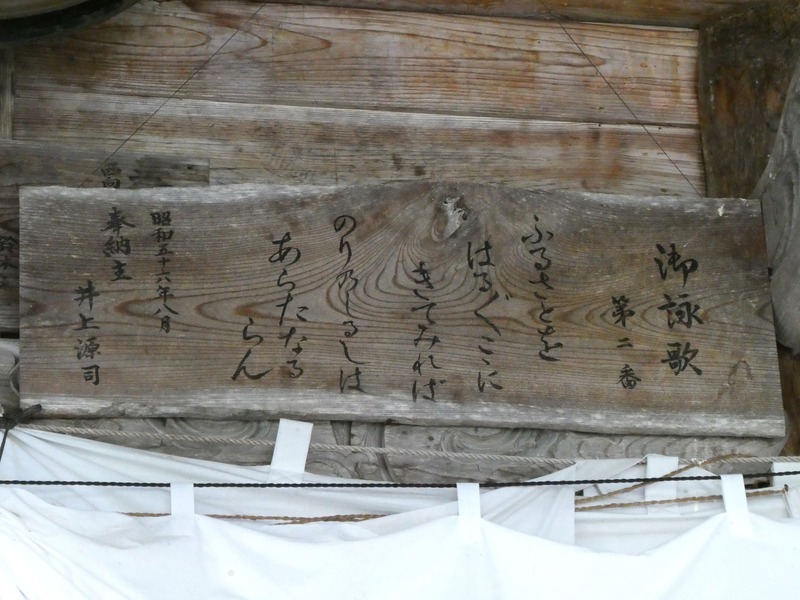 御詠歌
第二番
ふるさとを
はる〲こゝに
きてみれば
のりのしるしは
あらたなる
らん
昭和五十六年八月
奉納主
井上源司